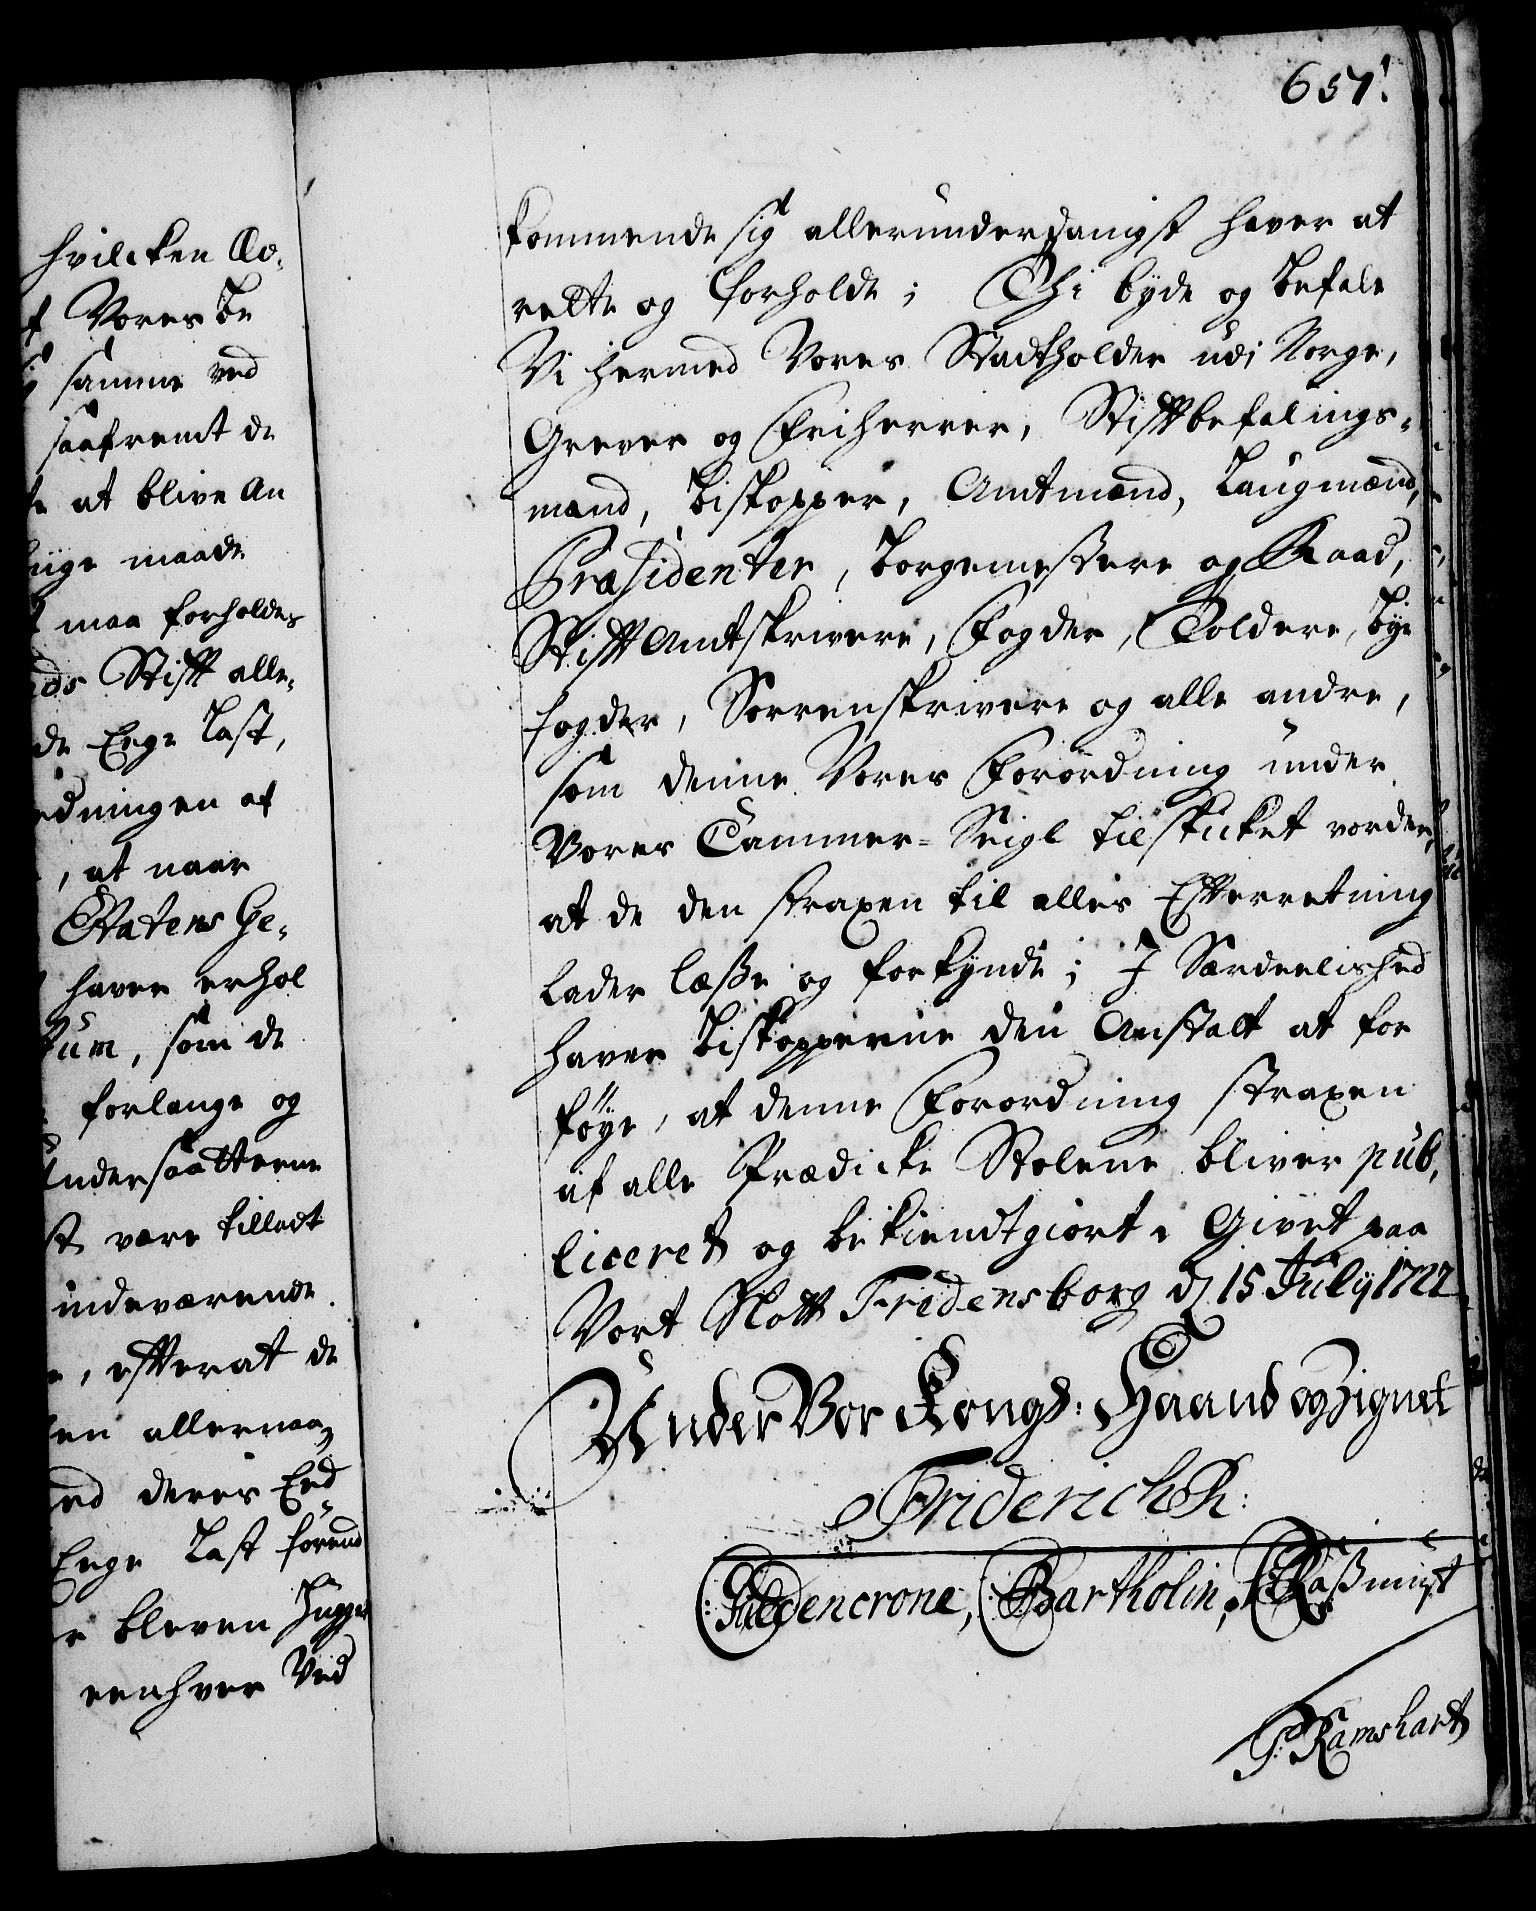 hvilcken Æv-
Vores Be
samme ved
saafremt de
at blive An
maade
maa forholdes
Stifft alle-
de Enge Last,
af
, at naar
Statens Ge-
haver erhol
um, som de
forlange og
undersaatterne
være tilladt
indeværende
, efterat de
allernaa-
deres End
Enge Last förend
bleven Hugge
eenhver Ved
657.
kommende sig allerunderdanigst haver at
rette og forholde; Thi byde og befale
Vi hermed Vores Stadtholder udi Norge,
Grever og Friherrer, Stifftbefalings-
mænd, Biskopper, Amtmænd, Laugmænd,
Præsidenter, Borgemestere og Raad,
Stifft Amtskrivere, Fogder, Toldere, Bÿe
fogder, Sorrenskrivere og alle andre,
som denne Vores Forordning under
Vores Cammer-Seigl tilskicket vorder,
at de den straxen til alles Efterretning
lader læsse og forkÿnde; I Særdeelished
haver Biskopperne den Anstalt at for
föÿe, at denne Forordning straxen
af alle Prædicke Stolene bliver pub-
liceret og bekiendtgiort. Givet paa
Vort Slott Fredensborg d 15 Julÿ 1727
Under Vor Kongs: Haand og Signet
Friderich R:
Güldencrone, Bartholin, Rassmust
P: Ramshart